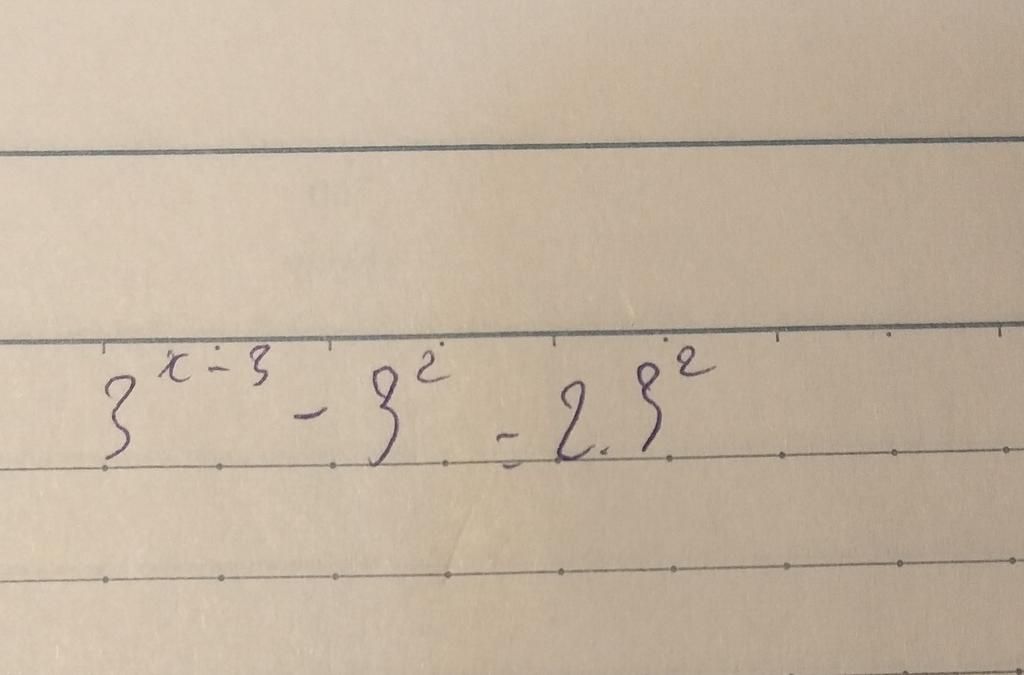 3^{x-3} - 3^2 = 2.3^2